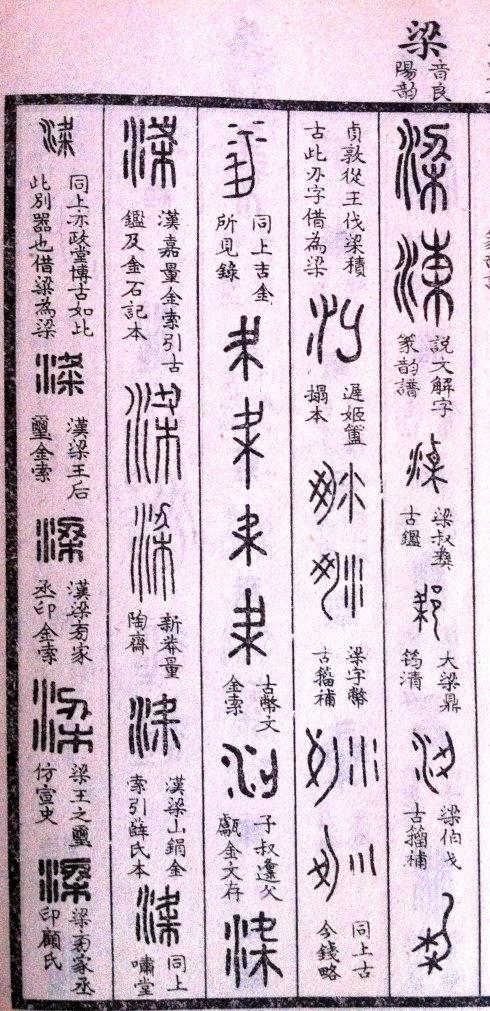 梁
音良
陽韵
説文解字
篆韵譜
梁叔彝
古鑑
大梁鼎
筠清
梁伯戈
古籀補
貞敦從王伐梁積
古此刅字借為梁
遲姬簠
搨本
梁字幣
古籀補
同上古
今錢略
同上吉金
所見錄
古幣文
金索
子叔𨖍父
甗金文存
漢嘉量金索引古
鑑及金石記本
新莽量
陶齋
漢梁山鋗金
索引薛氏本
同上
嘯堂
同上亦政堂博古如此
此別器也借梁為梁
漢梁王后
璽金索
漢梁䓁家
丞印金索
梁王之璽
仿宣史
家丞
印顧氏